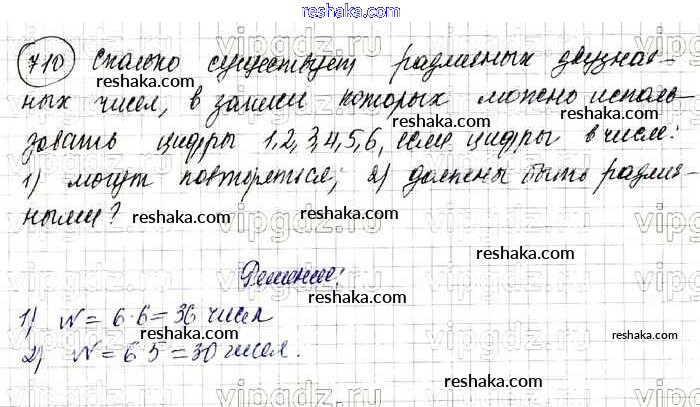 reshaka.com
710 Сколько существует различных двузнач-
ных чисел, в записи которых можно исполь-
зовать цифры 1,2,3,4,5,6, если цифры в числе:
1) могут повторяться; 2) должны быть различ-
ными?
Решение:
1) N = 6·6 = 36 чисел
2) N = 6·5 = 30 чисел.
reshaka.com
reshaka.com
reshaka.com
reshaka.com
reshaka.com
reshaka.com
reshaka.com
reshaka.com
reshaka.com
vipgdz.ru
vipgdz.ru